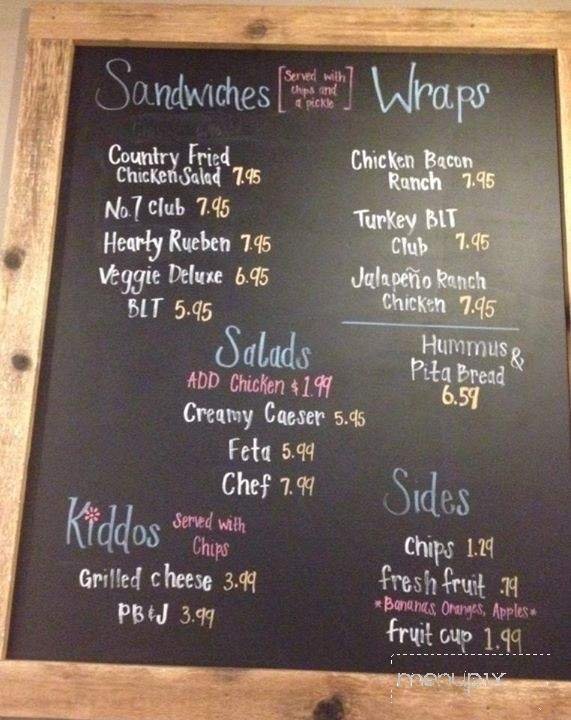 Sandwiches
Served with
chips and
a pickle
Country Fried
Chicken Salad 7.95
No.7 Club 7.95
Hearty Rueben 7.95
Veggie Deluxe 6.95
BLT 5.95
Wraps
Chicken Bacon
Ranch 7.95
Turkey BLT
Club 7.95
Jalapeño Ranch
Chicken 7.95
Hummus &
Pita Bread
6.59
Salads
ADD Chicken $1.99
Creamy Caeser 5.95
Feta 5.99
Chef 7.99
Kiddos
Served with
Chips
Grilled cheese 3.99
PB&J 3.99
Sides
Chips 1.29
fresh fruit .79
*Bananas, Oranges, Apples*
fruit cup 1.99
menupix